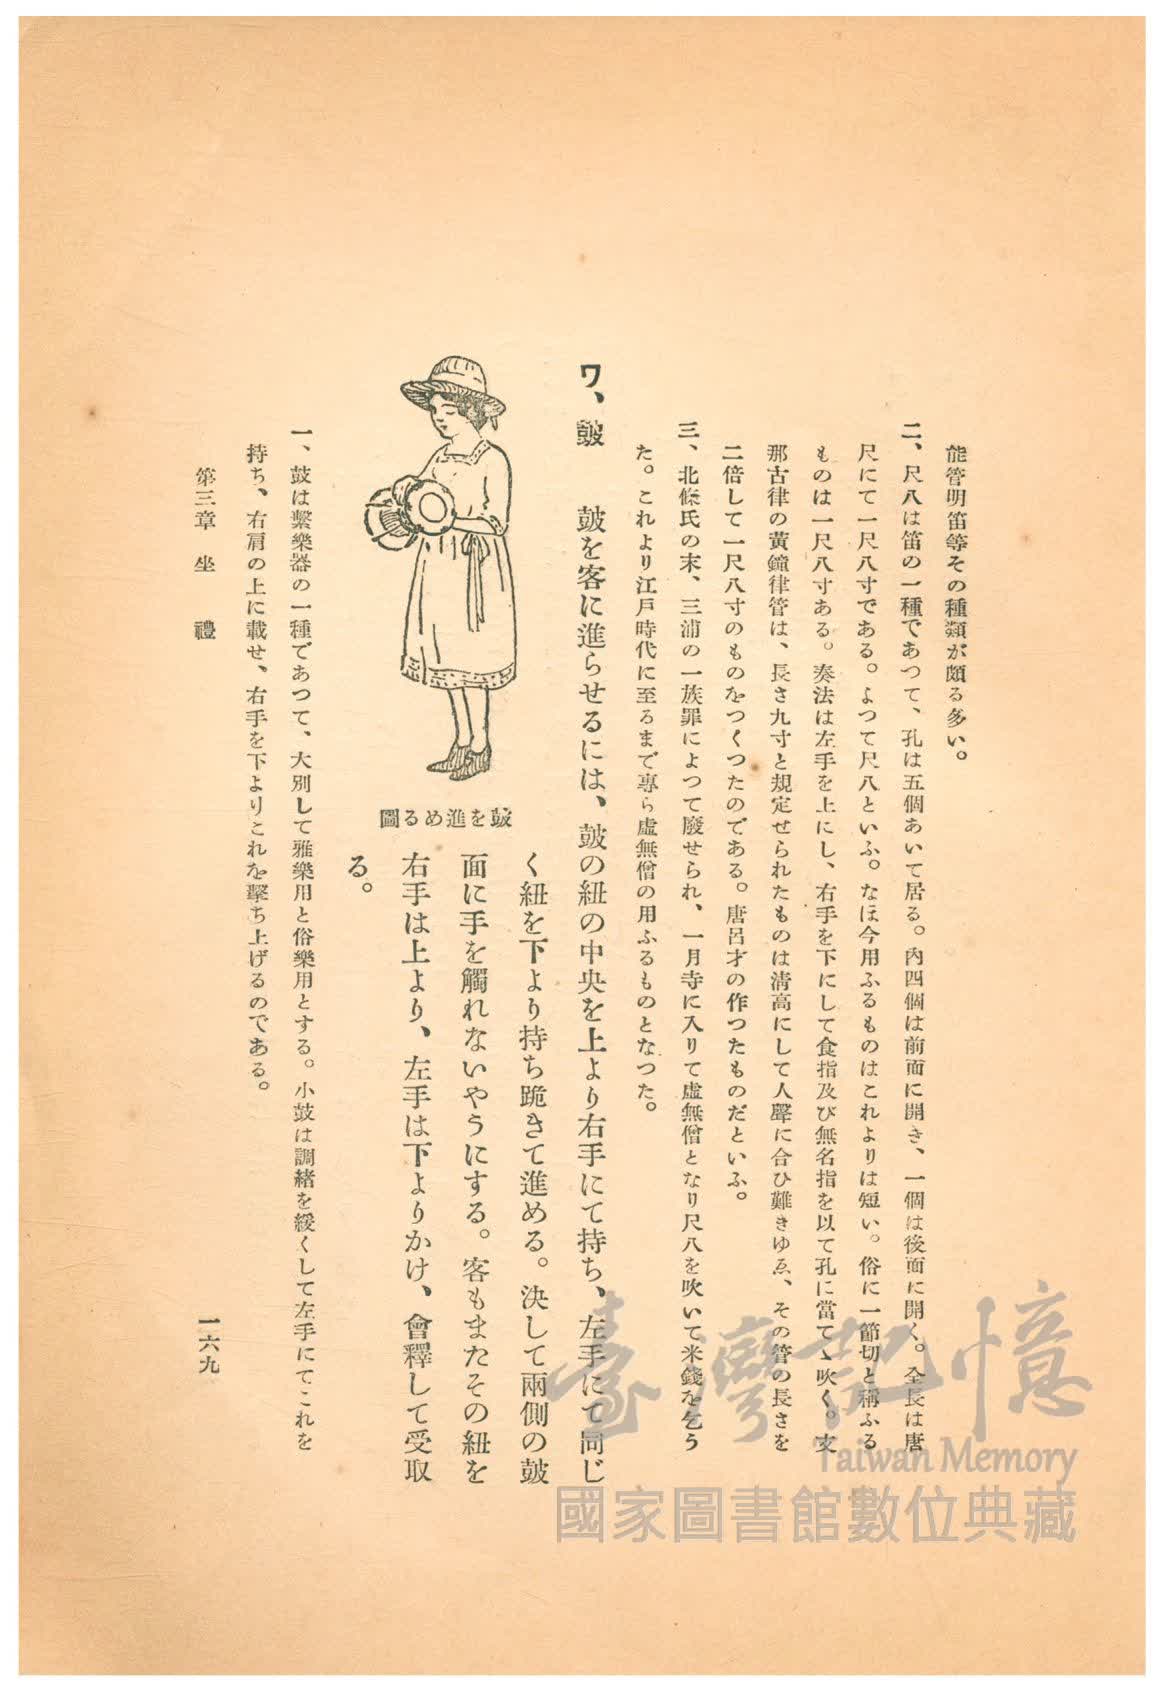 能管明笛等その種類が頗る多い。
二、尺八は笛の一種であつて、孔は五個あいて居る。內四個は前面に開き、一個は後面に開く。全長は唐
尺にて一尺八寸である。よつて尺八といふ。なほ今用ふるものはこれよりは短い。俗に一節切と稱ふる
ものは一尺八寸ある。奏法は左手を上にし、右手を下にして食指及び無名指を以て孔に當てゝ吹く。支
那古律の黃鐘律管は、長さ九寸と規定せられたものは淸高にして人聲に合ひ難きゆゑ、その管の長さを
二倍して一尺八寸のものをつくつたのである。唐呂才の作つたものだといふ。
三、北條氏の末、三浦の一族罪によつて廢せられ、一月寺に入りて虛無僧となり尺八を吹いて米錢を乞う
た。これより江戶時代に至るまで專ら虛無僧の用ふるものとなつた。
ワ、皷　皷を客に進らせるには、皷の紐の中央を上より右手にて持ち、左手にて同じ
く紐を下より持ち跪きて進める。決して兩側の皷
面に手を觸れないやうにする。客もまたその紐を
右手は上より、左手は下よりかけ、會釋して受取
る。
皷を進める圖
一、鼓は擊樂器の一種であつて、大別して雅樂用と俗樂用とする。小鼓は調緒を緩くして左手にてこれを
持ち、右肩の上に載せ、右手を下よりこれを擊ち上げるのである。
第三章　坐　禮
一六九
臺灣記憶
Taiwan Memory
國家圖書館數位典藏